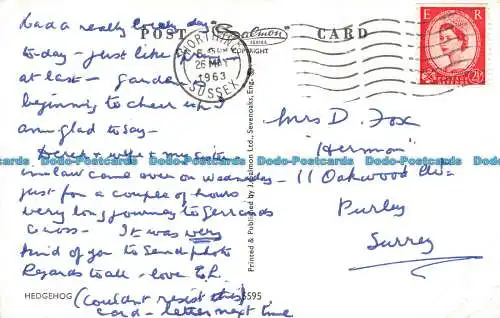 POST "Salmon" CARD
SERIES
COPYRIGHT
WORTHING
26 MAY
1963
SUSSEX
E R
2½D
Had a really lovely day
to-day - just like
at last -
beginning to cheer up I
am glad to say -
Derek & wife & my sister
in law came over on Wednesday -
just for a couple of hours
very long journey to Gerrards
Cross - It was very
kind of you to send photo
Regards to all - love
(couldn't resist this)
card - letter next time
Mrs D. Fox
"Hermon"
11 Oakwood Ave
Purley
Surrey
Printed & Published by J. Salmon Ltd., Sevenoaks, Eng.
HEDGEHOG
6595
Dodo-Postcards Dodo-Postcards Dodo-Postcards Dodo-Postcards Dodo-Postcards